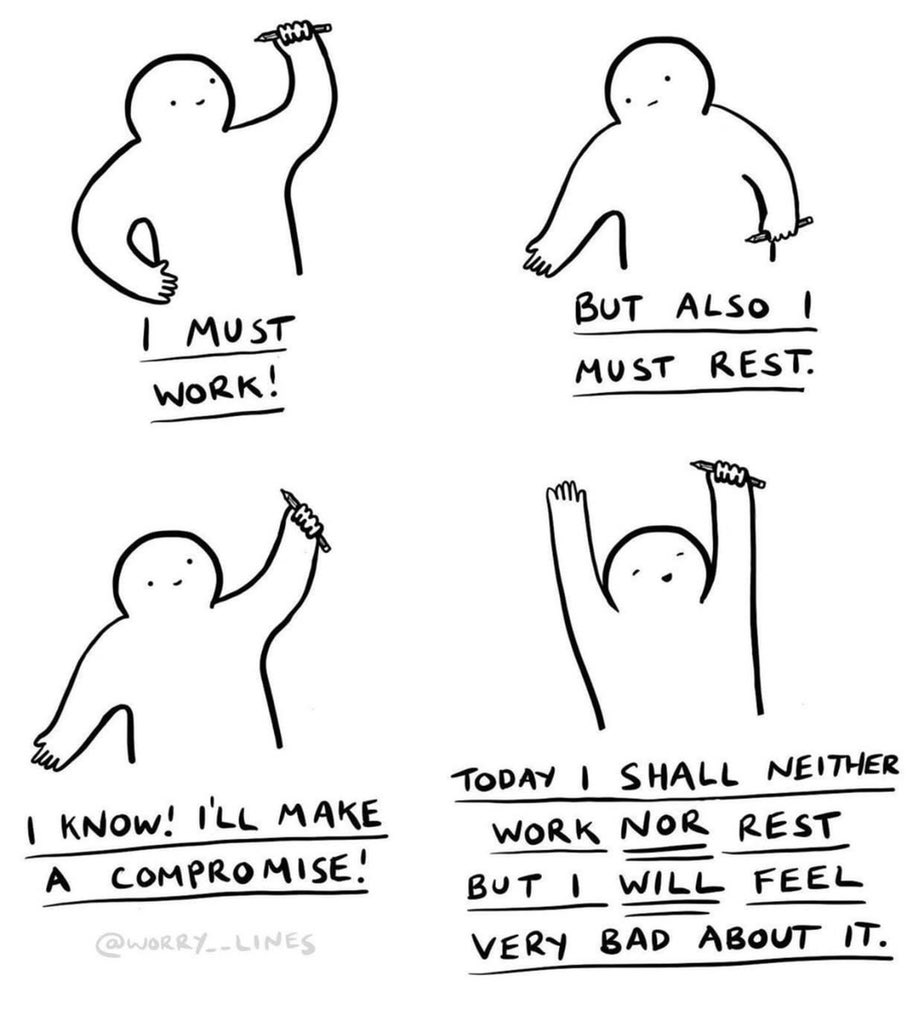 I MUST
WORK!
BUT ALSO I
MUST REST.
I KNOW! I'LL MAKE
A COMPROMISE!
@WORRY__LINES
TODAY I SHALL NEITHER
WORK NOR REST
BUT I WILL FEEL
VERY BAD ABOUT IT.